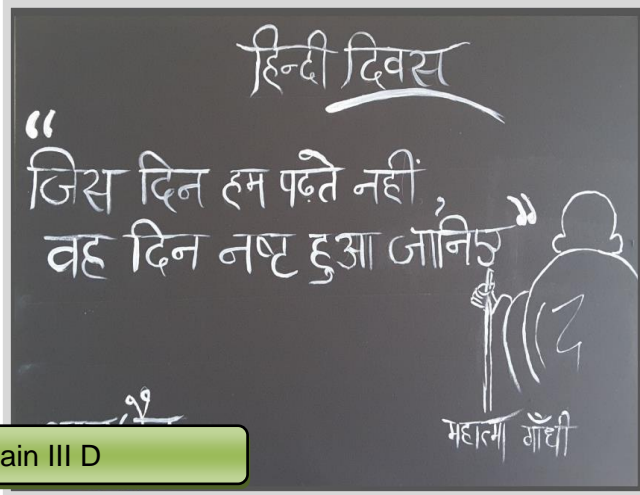 हिन्दी दिवस
“जिस दिन हम पढ़ते नहीं,
वह दिन नष्ट हुआ जानिए”
महात्मा गाँधी
ain III D